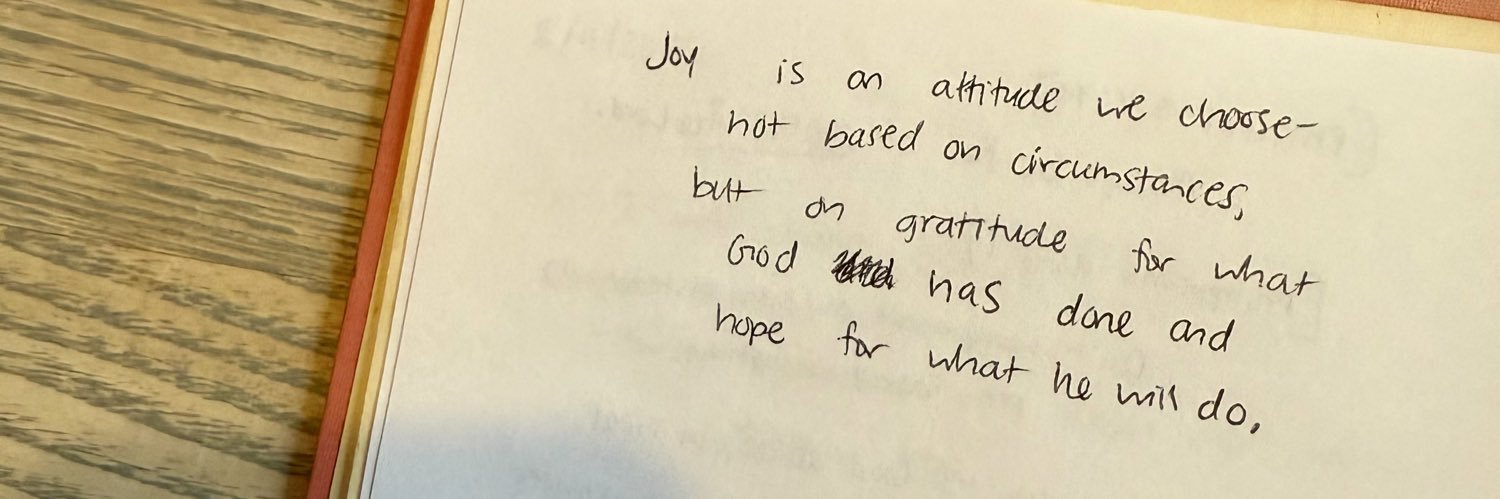 Joy is an attitude we choose-
not based on circumstances,
but on gratitude for what
God has done and
hope for what he will do.